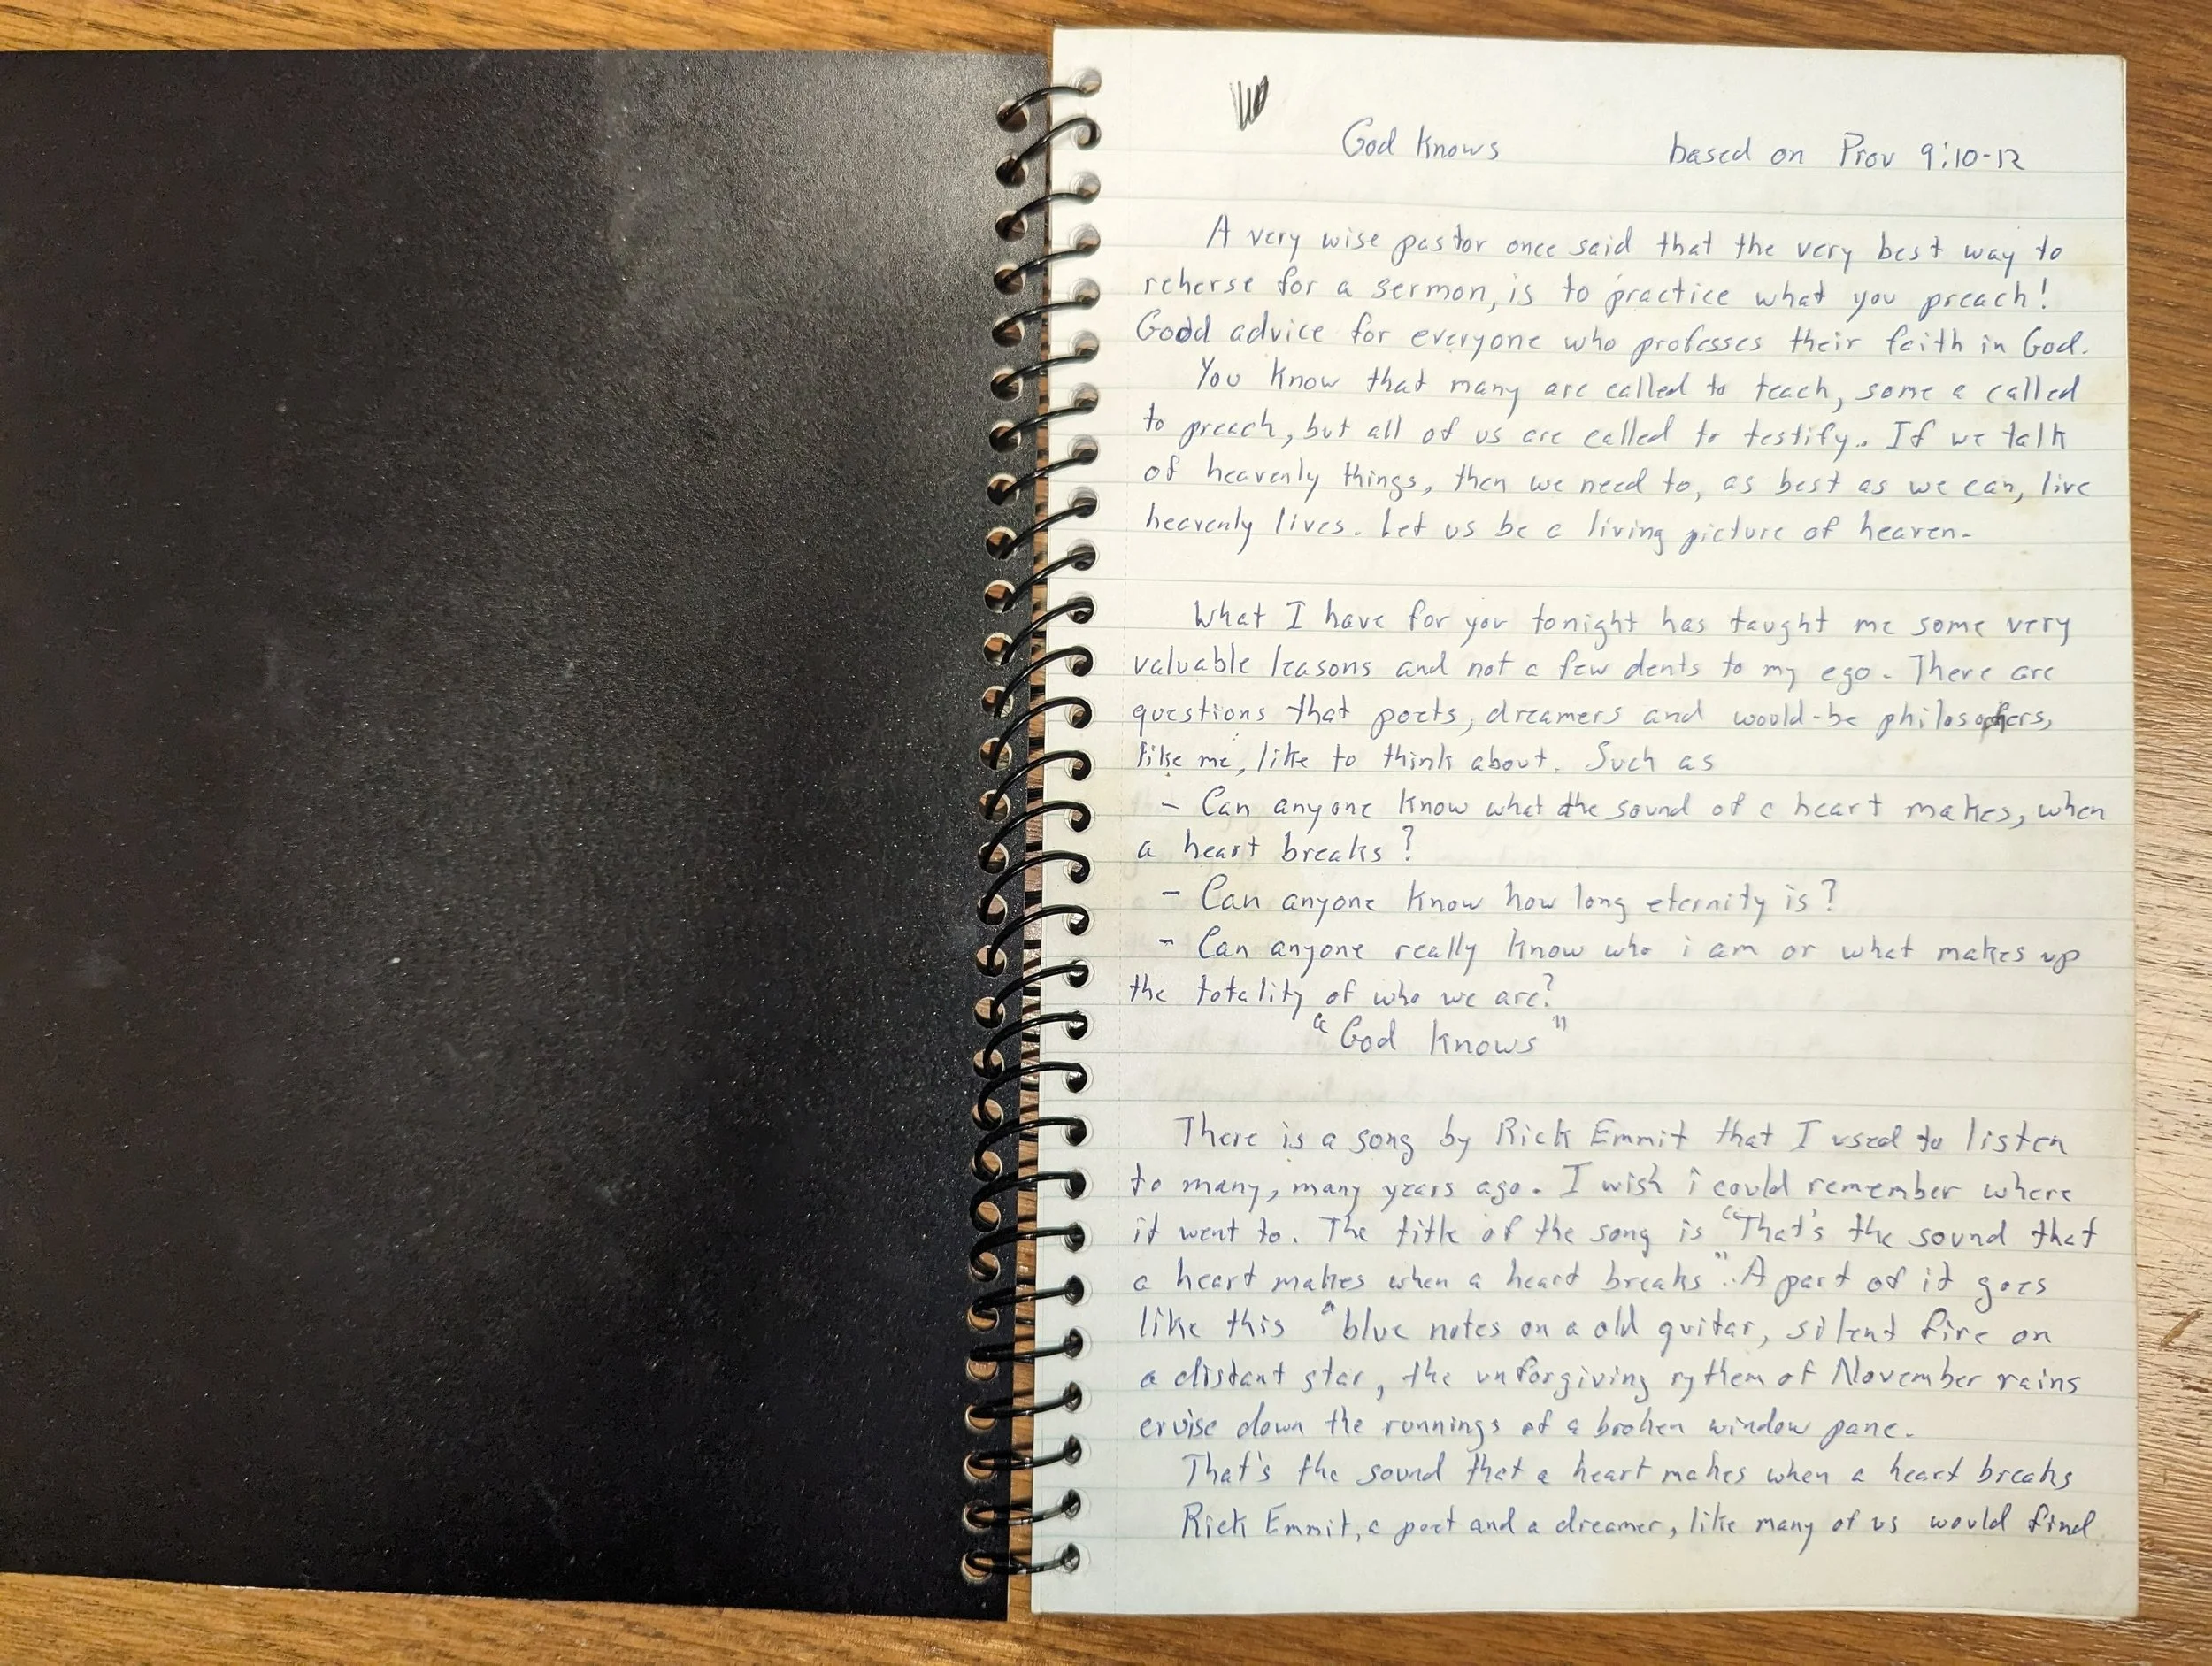 God Knows based on Prov 9:10-12
A very wise pastor once said that the very best way to
reherse for a sermon, is to practice what you preach!
Good advice for everyone who professes their faith in God.
You know that many are called to teach, some a called
to preach, but all of us are called to testify.. If we talk
of heavenly things, then we need to, as best as we can, live
heavenly lives. Let us be a living picture of heaven.
What I have for you tonight has taught me some very
valuable leasons and not a few dents to my ego. There are
questions that poets, dreamers and would-be philosophers,
like me, like to think about. Such as
- Can anyone know what the sound of a heart makes, when
a heart breaks?
- Can anyone know how long eternity is?
- Can anyone really know who i am or what makes up
the totality of who we are?
"God knows"
There is a song by Rick Emmit that I used to listen
to many, many years ago. I wish i could remember where
it went to. The title of the song is "That's the sound that
a heart makes when a heart breaks".. A part of it goes
like this "blue notes on a old guitar, silent fire on
a distant star, the unforgiving rythem of November rains
cruise down the runnings of a broken window pane.
That's the sound that a heart makes when a heart breaks
Rick Emmit, a poet and a dreamer, like many of us would find